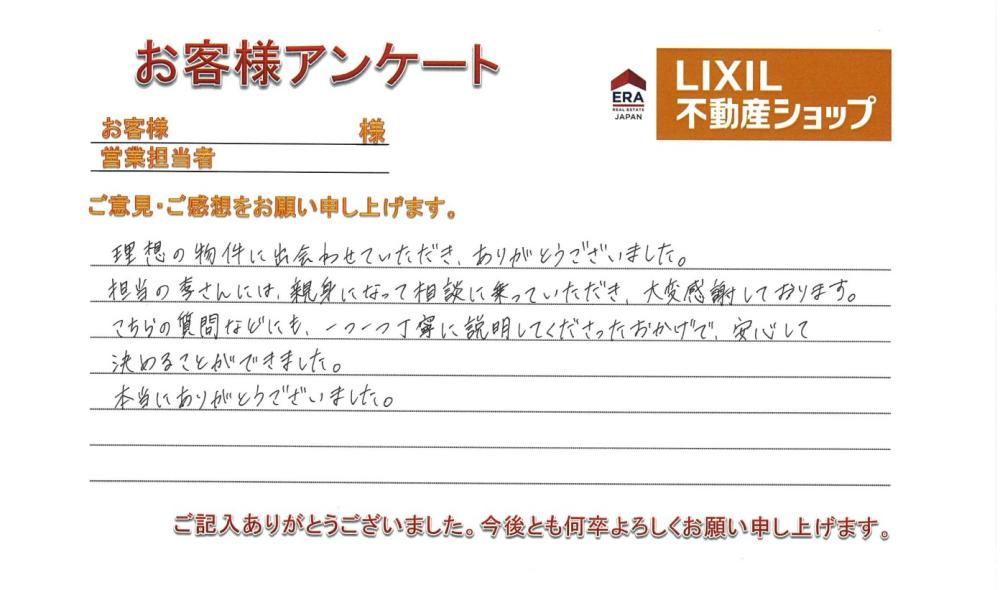 お客様アンケート
ERA
REAL ESTATE
JAPAN
LIXIL
不動産ショップ
お客様 様
営業担当者
ご意見・ご感想をお願い申し上げます。
理想の物件に出会わせていただき、ありがとうございました。
担当の李さんには、親身になって相談に乗っていただき、大変感謝しております。
こちらの質問などにも、一つ一つ丁寧に説明してくださったおかげで、安心して
決めることができました。
本当にありがとうございました。
ご記入ありがとうございました。今後とも何卒よろしくお願い申し上げます。